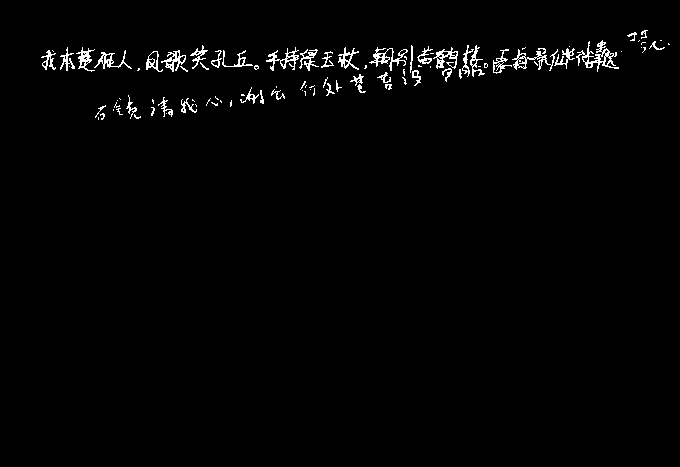 我本楚狂人,凤歌笑孔丘。手持绿玉杖,朝别黄鹤楼。五岳寻仙
石镜清我心,谢公行处苍苔没